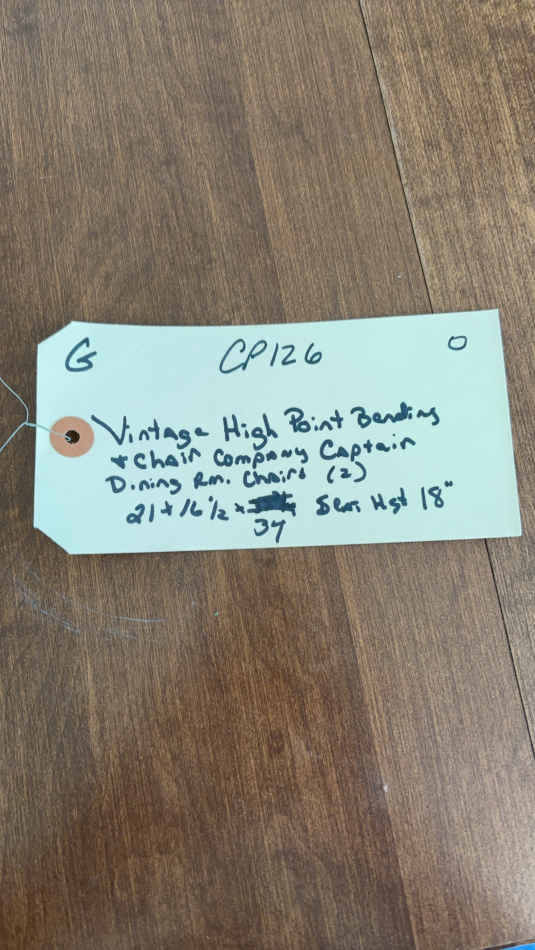 G CP126 O
Vintage High Point Bending
+ Chair Company Captain
Dining Rm. Chairs (2)
21 x 16 1/2 x Hgt 18"
34